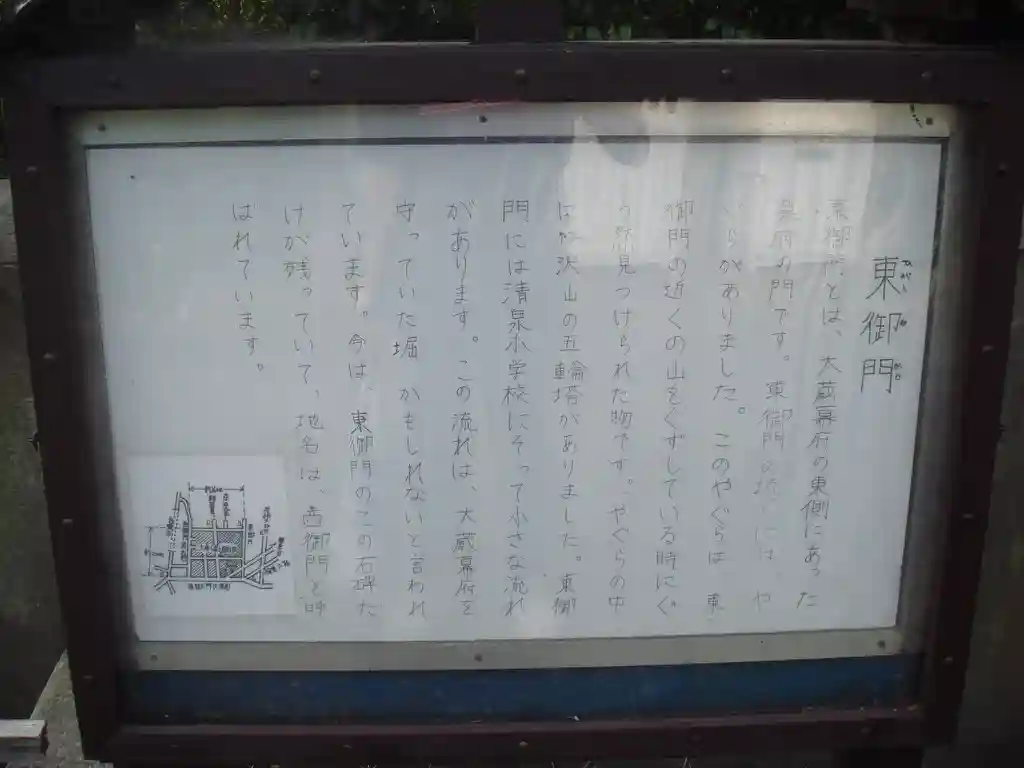 東御門
ひがし み かど
東御門とは、大蔵幕府の東側にあった
幕府の門です。東御門の近くには、や
ぐらがありました。このやぐらは、東
御門の近くの山をくずしている時にぐ
う然見つけられた物です。やぐらの中
には 沢山の五輪塔がありました。東御
門には清泉小学校にそって小さな流れ
があります。この流れは、大蔵幕府を
守っていた堀 かもしれないと言われ
ています。今は、東御門のこの石碑だ
けが残っていて、地名は、西御門と呼
ばれています。